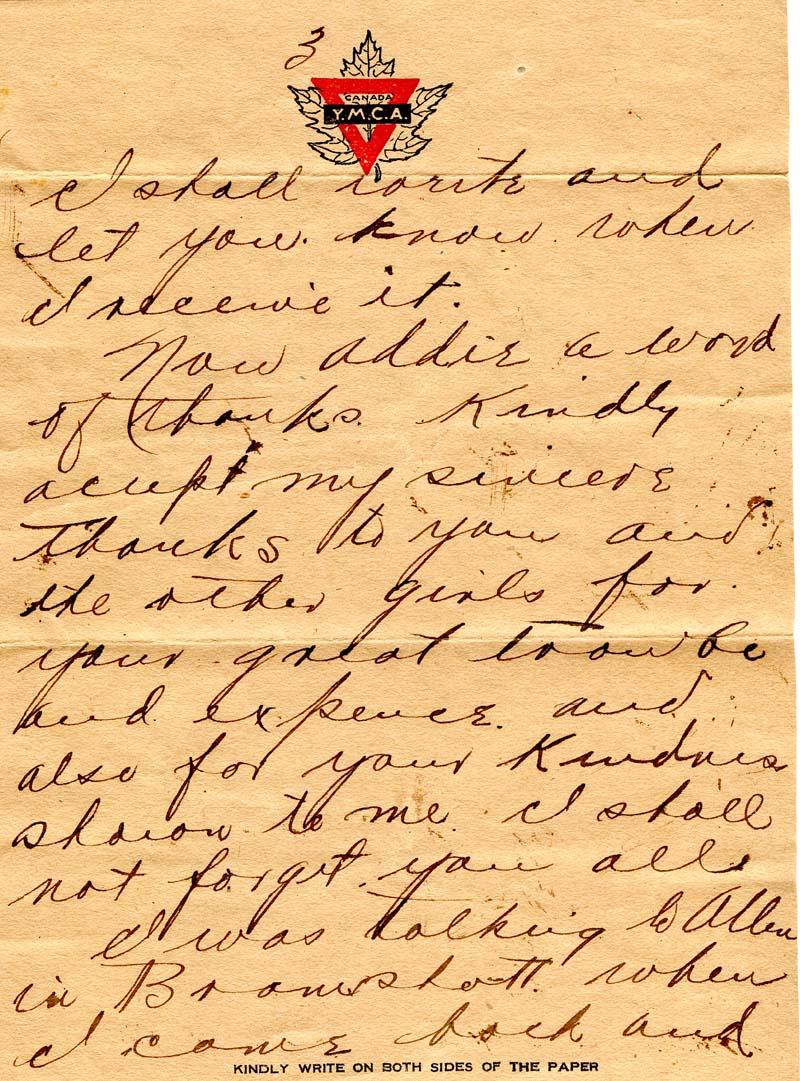 3
CANADA
Y.M.C.A.
I shall write and
let you know when
I receive it.
Now Addie a word
of thanks. Kindly
accept my sincere
thanks to you and
the other girls for
your great trowble
and expence and
also for your Kindness
shown to me. I shall
not forget you all.
I was talking to Allen
in Bramshott when
I came back and
KINDLY WRITE ON BOTH SIDES OF THE PAPER